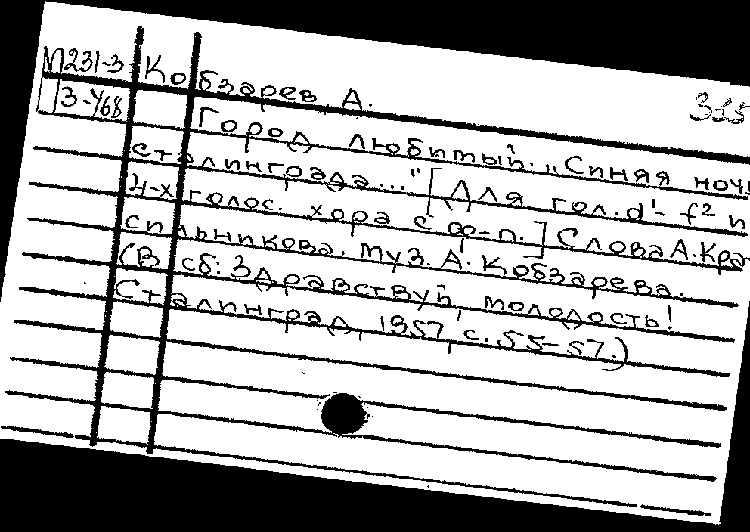 М231-3 Кобзарев, А.
З-468 355
Город любимый. „Синяя ночь
Сталинграда..." [Для гол. d¹- f² и
4-х голос. хора с ф-п.] Слова А. Кра-
сильникова. Муз. А. Кобзарева.
(В сб: Здравствуй, молодость!
Сталинград, 1957, с. 55-57.)